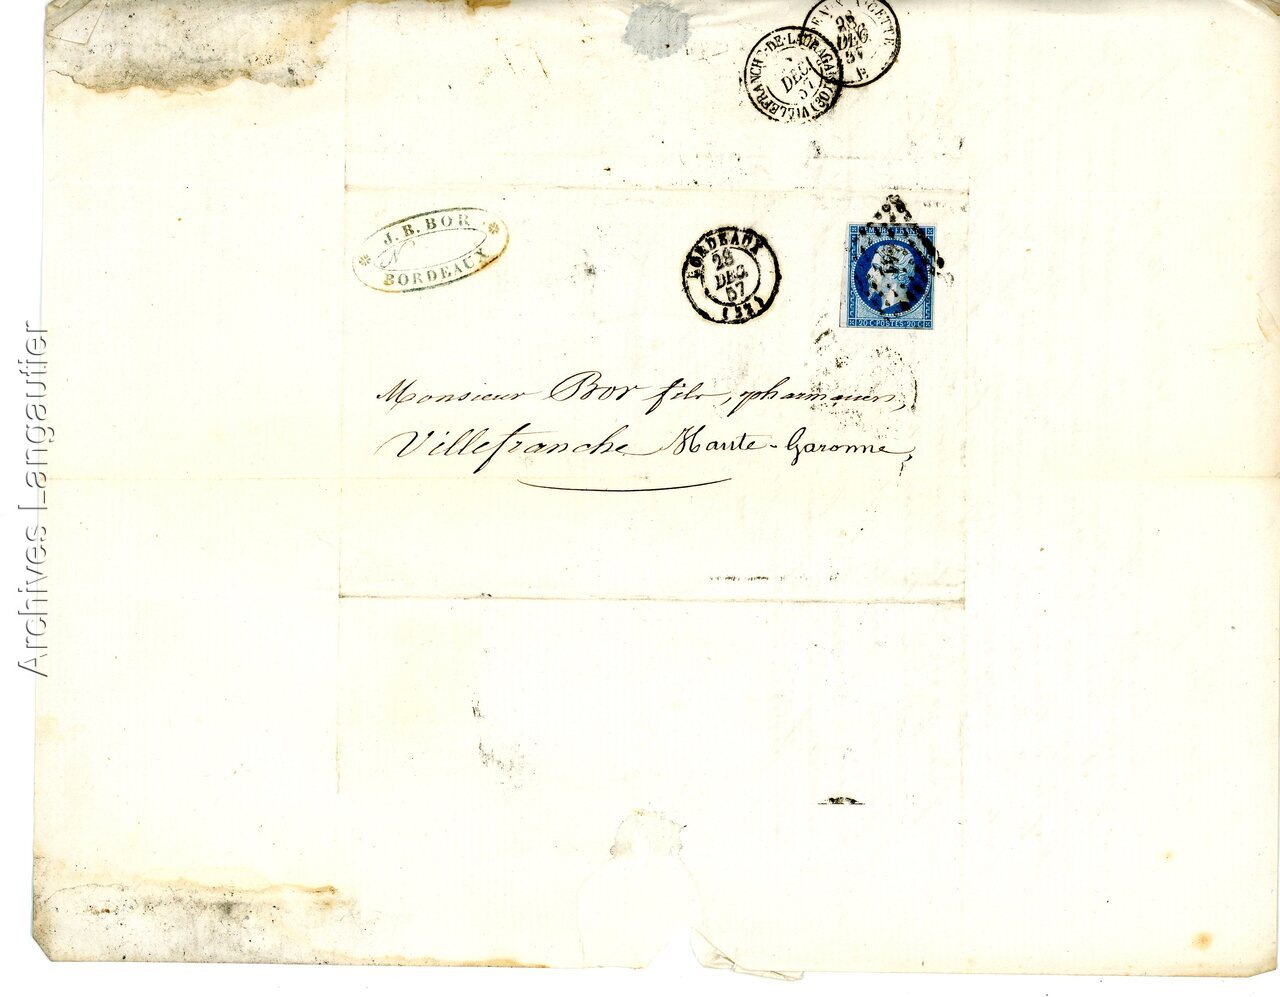 BORDEAUX A CETTE
28
DEC.
57
B
VILLEFRANCHE-DE-LAURAGAIS
DEC.
57
* J. B. BOR *
BORDEAUX
BORDEAUX
28
DEC.
57
(32)
EMPIRE FRANC
20 C POSTES 20 C
Monsieur Bor fils, pharmacien,
Villefranche Haute-Garonne,
Archives Langautier